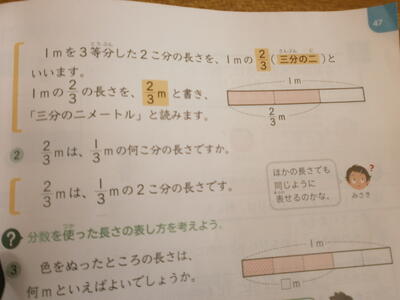 47
とうぶん
1mを3等分した2こ分の長さを、1mの2/3(三分の二)と
さんぶん に
いいます。
1mの2/3の長さを、2/3mと書き、
「三分の二メートル」と読みます。
1m
2/3m
2 2/3mは、1/3mの何こ分の長さですか。
2/3mは、1/3mの2こ分の長さです。
ほかの長さでも
同じように
表せるのかな。
?
みさき
? 分数を使った長さの表し方を考えよう。
3 色をぬったところの長さは、
何mといえばよいでしょうか。
1m
□m